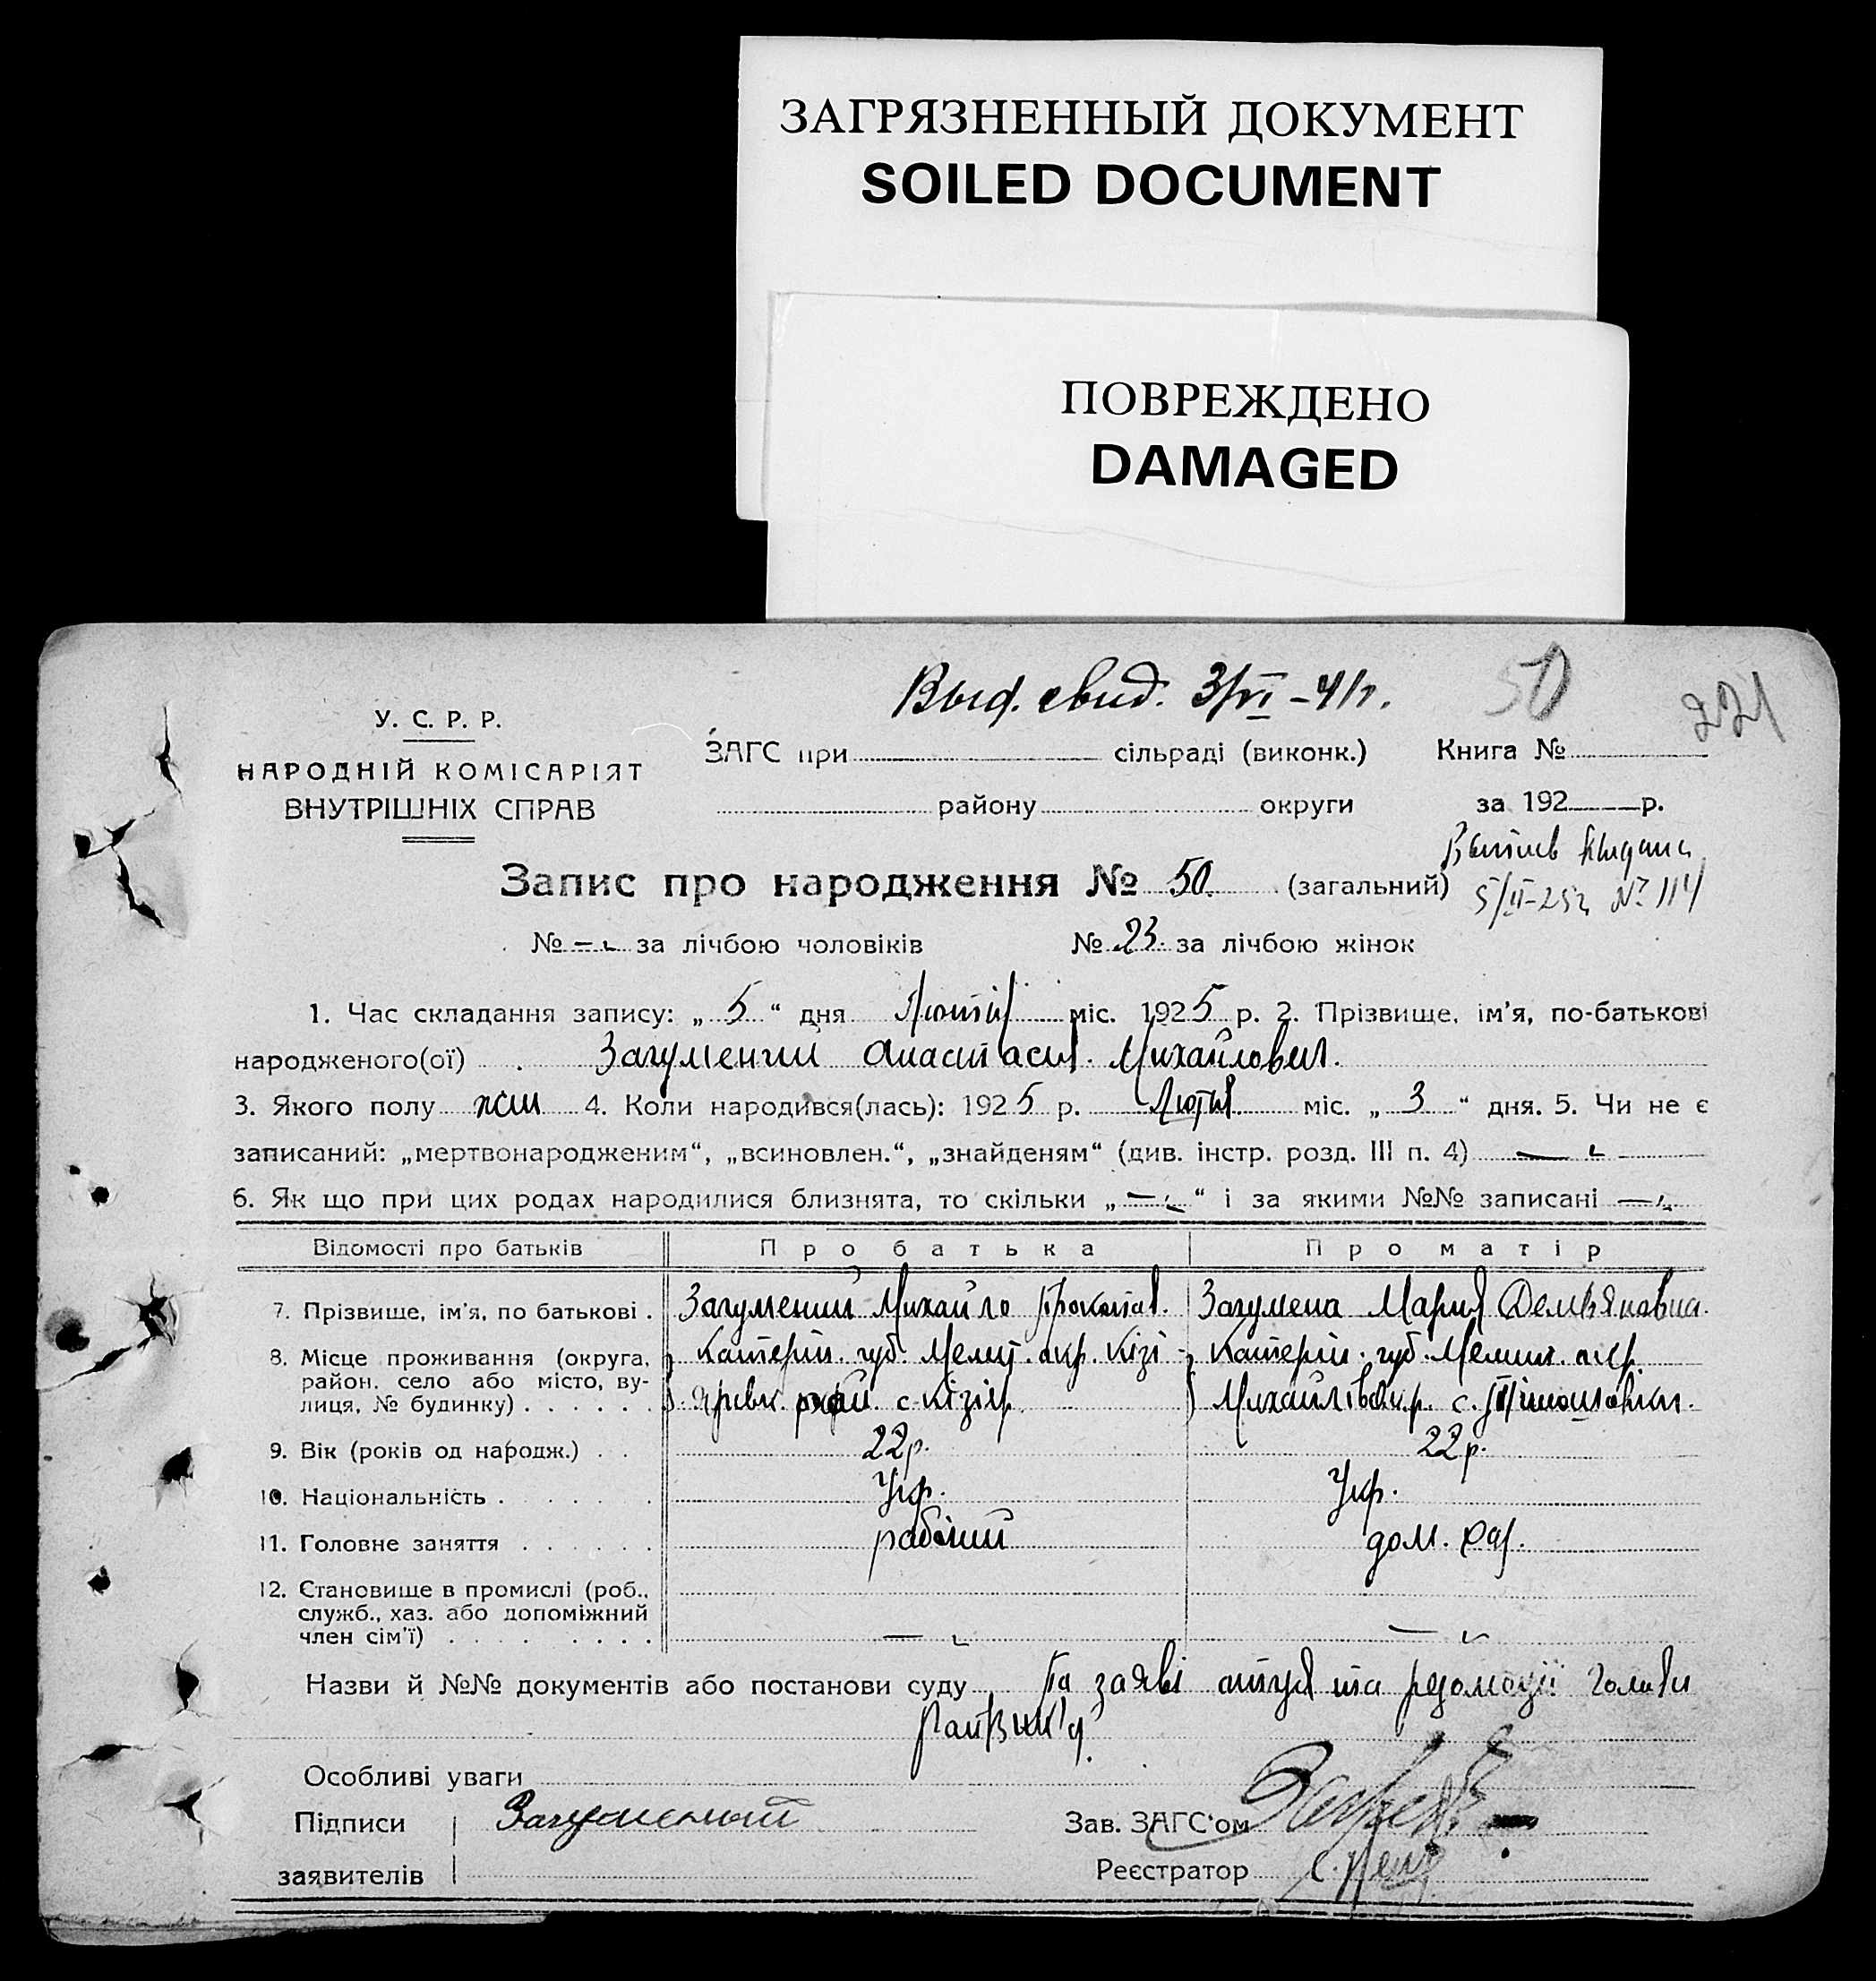 ЗАГРЯЗНЕННЫЙ ДОКУМЕНТ
SOILED DOCUMENT
ПОВРЕЖДЕНО
DAMAGED
Выд. свид. 3/VI-41г.
50
221
У. С. Р. Р.
НАРОДНІЙ КОМІСАРІЯТ
ВНУТРІШНІХ СПРАВ
ЗАГС при сільраді (виконк.) Книга №
району округи за 192 р.
Запис про народження № 50. (загальний)
5/II-25г. № 114
№ за лічбою чоловіків № 23. за лічбою жінок
1. Час складання запису: „ 5 “ дня Лютня міс. 1925 р. 2. Прізвище, ім'я, по-батькові
народженого(ої) Загумений Анастасія Михайловна.
3. Якого полу жін 4. Коли народився(лась): 1925 р. Лютня міс. „ 3 “ дня. 5. Чи не є
записаний: „мертвонародженим“, „всиновлен.“, „знайденям“ (див. інстр. розд. III п. 4) —
6. Як що при цих родах народилися близнята, то скільки „ — “ і за якими №№ записані —
Відомості про батьків Про батька Про матір
7. Прізвище, ім'я, по батькові . Загумений Михайло Загумена Мария Демьяновна.
8. Місце проживання (округа, Катерин. губ. Мелит. окр. Кізі- Катерин. губ. Мелит. окр.
район, село або місто, ву- ярівк. с. Кізіяр Михайлів с. Тімошовка.
лиця, № будинку) . . . . . .
9. Вік (років од народж.) . . 22р. 22р.
10. Національність . . . . . . . Укр. Укр.
11. Головне заняття . . . . . . рабочий дом. хаз.
12. Становище в промислі (роб.,
служб., хаз. або допоміжний
член сім'ї) . . . . . . . . — —
Назви й №№ документів або постанови суду По заяві отця та резолюції Голови
Особливі уваги
Підписи Загумений Зав. ЗАГС'ом
заявителів Реєстратор